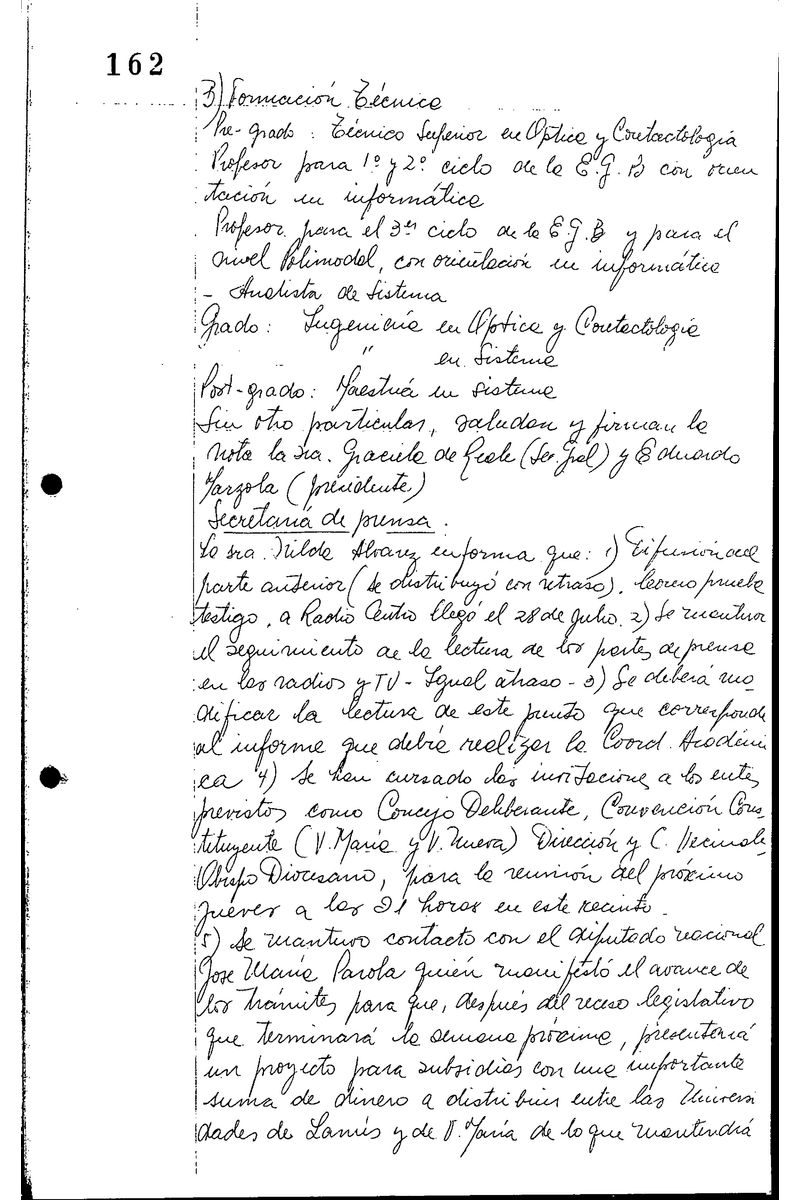 162
3) Formación Técnica
Pre-grado: Técnico Superior en Optica y Contactología
Profesor para 1º y 2º ciclo de la E.G.B con orien
tación en informática
Profesor para el 3er ciclo de la E.G.B y para el
nivel Polimodal, con orientación en informática
- Analista de Sistema
Grado: Ingeniería en Optica y Contactología
" en Sistema
Post-grado: Maestría en Sistema
Sin otro particular, saludan y firman la
nota la sra. Graciela de Reale (Sec. Gral) y Eduardo
Marzola (presidente)
Secretaría de prensa.
La sra. Nilda Alvarez informa que: 1) Difusión del
parte anterior (se distribuyó con retraso). Como prueba
testigo, a Radio Centro llegó el 28 de Julio. 2) Se mantuvo
el seguimiento de la lectura de los partes de prensa
en las radios y TV - Igual atraso - 3) Se deberá mo_
dificar la lectura de este punto que corresponde
al informe que debía realizar la Coord. Académi
ca 4) Se han cursado las invitaciones a los entes
previstos como Concejo Deliberante, Convención Cons_
tituyente (V. María y V. Nueva) Dirección y C. Vecinale_
Obispo Diocesano, para la reunión del próximo
jueves a las 21 horas en este recinto.
5) Se mantuvo contacto con el diputado nacional
Jose María Parola quién manifestó el avance de
los trámites para que, después del receso legislativo
que terminará la semana próxima, presentará
un proyecto para subsidios con una importante
suma de dinero a distribuir entre las Universi
dades de Lanús y de V. María de lo que mantendrá